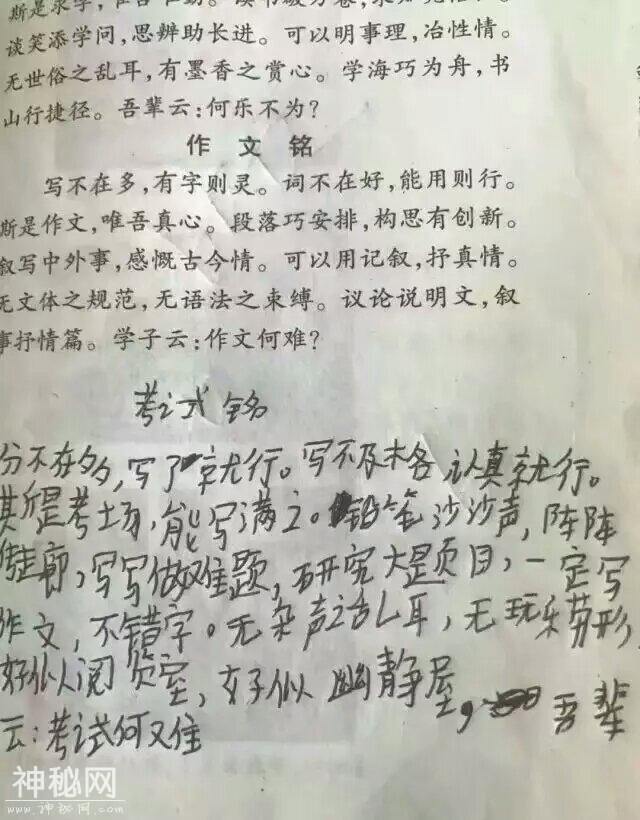 斯是求学,唯吾
谈笑添学问,思辨助长进。可以明事理,冶性情。
无世俗之乱耳,有墨香之赏心。学海巧为舟,书
山行捷径。吾辈云:何乐不为?
作文铭
写不在多,有字则灵。词不在好,能用则行。
斯是作文,唯吾真心。段落巧安排,构思有创新。
叙写中外事,感慨古今情。可以用记叙,抒真情。
无文体之规范,无语法之束缚。议论说明文,叙
事抒情篇。学子云:作文何难?
考试铭
分不在多,写了就行。写不及格,认真就行。
斯是考场,能写满 。铅笔沙沙声,阵阵
走廊,写写做难题,研究大题目,一定写
作文,不错字。无杂声之乱耳,无玩乐劳形,
好似阅览室,好似幽静屋, 吾辈
云:考试何又难
神秘网
www.神秘网.com